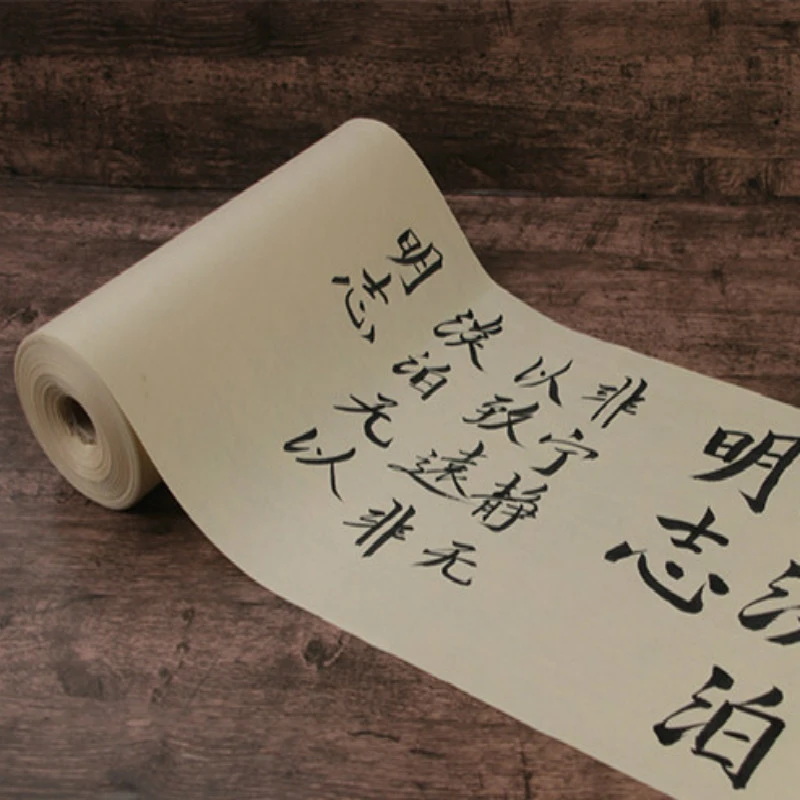 泊
明志
非宁静无
以致远非
淡泊无以
明志